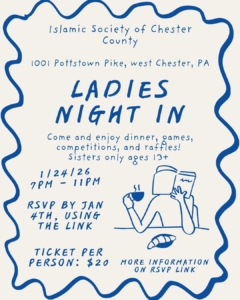 Islamic Society of Chester
County
1001 Pottstown Pike, west Chester, PA
LADIES
NIGHT IN
Come and enjoy dinner, games,
competitions, and raffles!
Sisters only ages 13+
1/24/26
7PM - 11PM
RSVP BY JAN
4TH, USING
THE LINK
TICKET PER
PERSON: $20
MORE INFORMATION
ON RSVP LINK